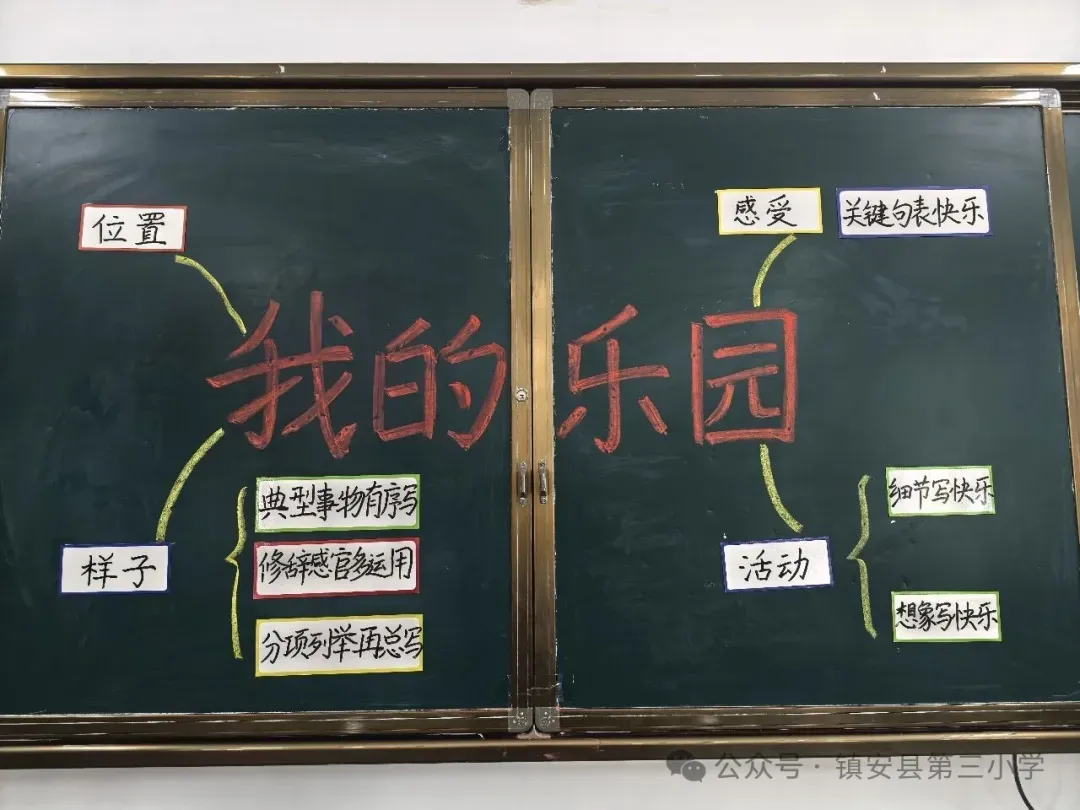 位置
感受
关键句表快乐
我的乐园
样子
典型事物有序写
修辞感官多运用
分项列举再总写
活动
细节写快乐
想象写快乐
公众号·镇安县第三小学